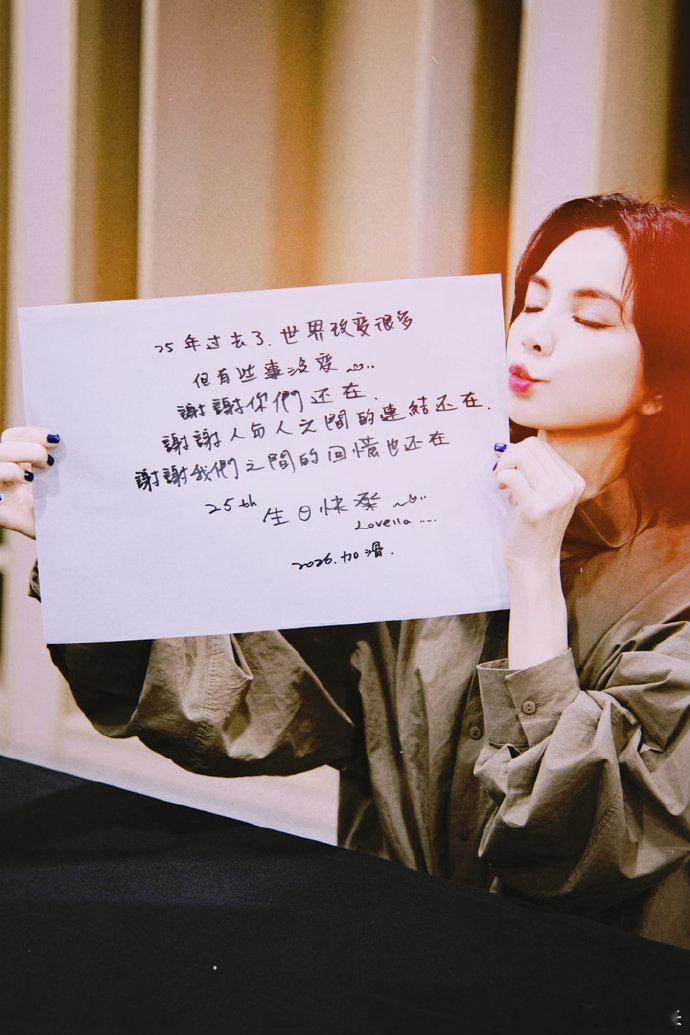 25年过去了.世界改变很多
但有些事沒变~...
謝謝你們还在.
謝謝人与人之間的連結还在.
謝謝我們之間的回憶也还在
25th 生日快樂~
Lovella ....
2026.加滑.